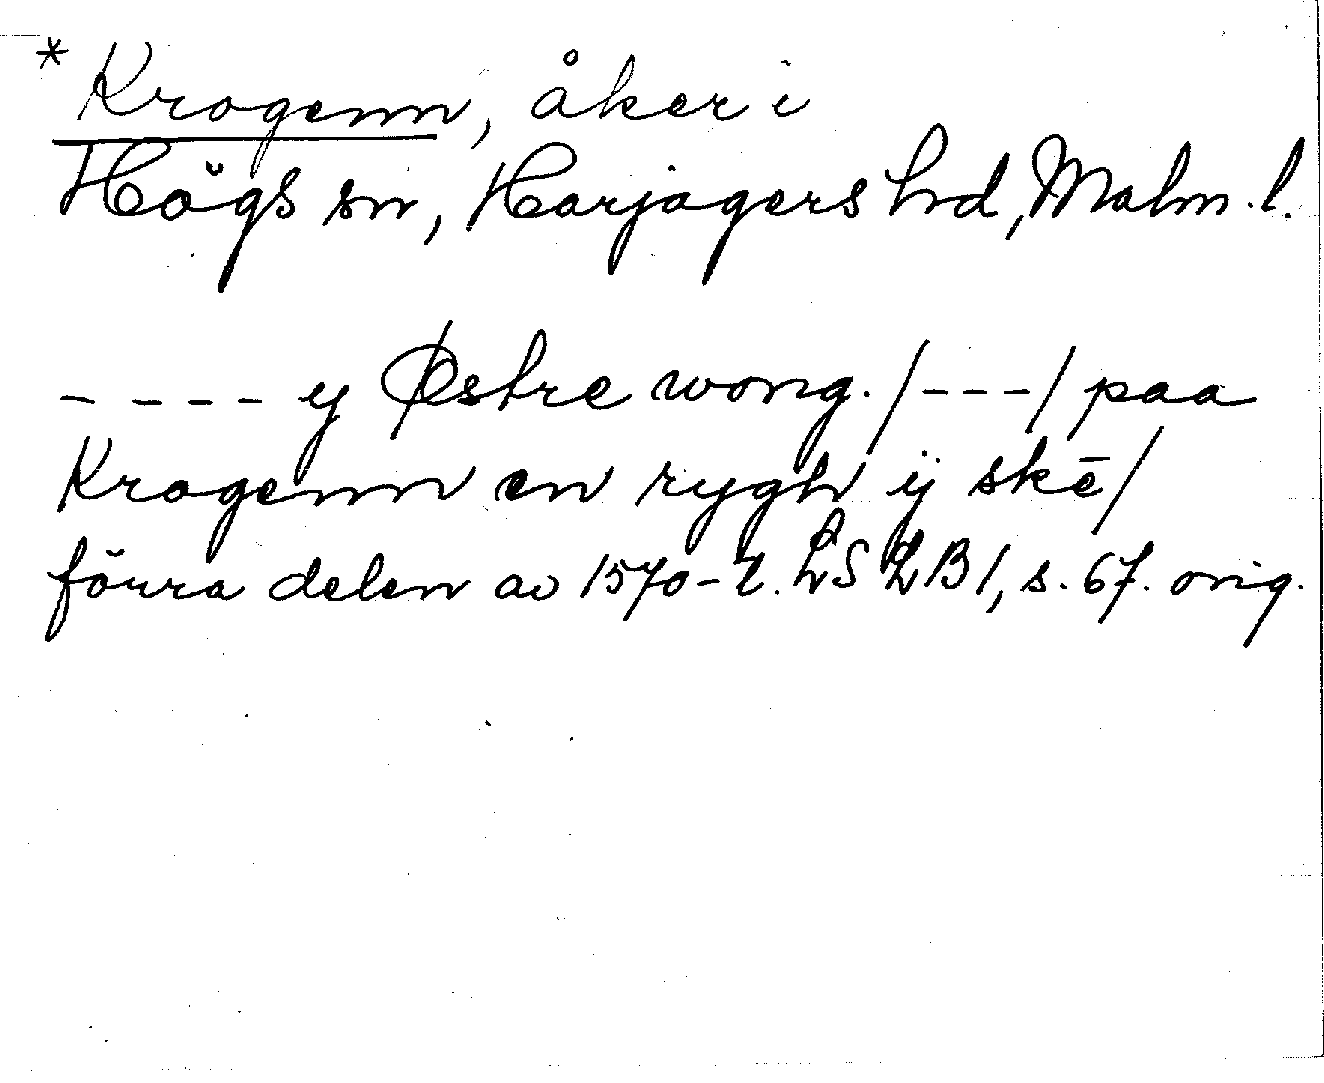 * Krogenn, åker i
Högs sn, Harjagers hd, Malm. l.
- - - - y Østre wong. /- - -/ paa
Krogenn en rygh ÿ skē/
förra delen av 1570-t. LS LB 1, s. 67. orig.